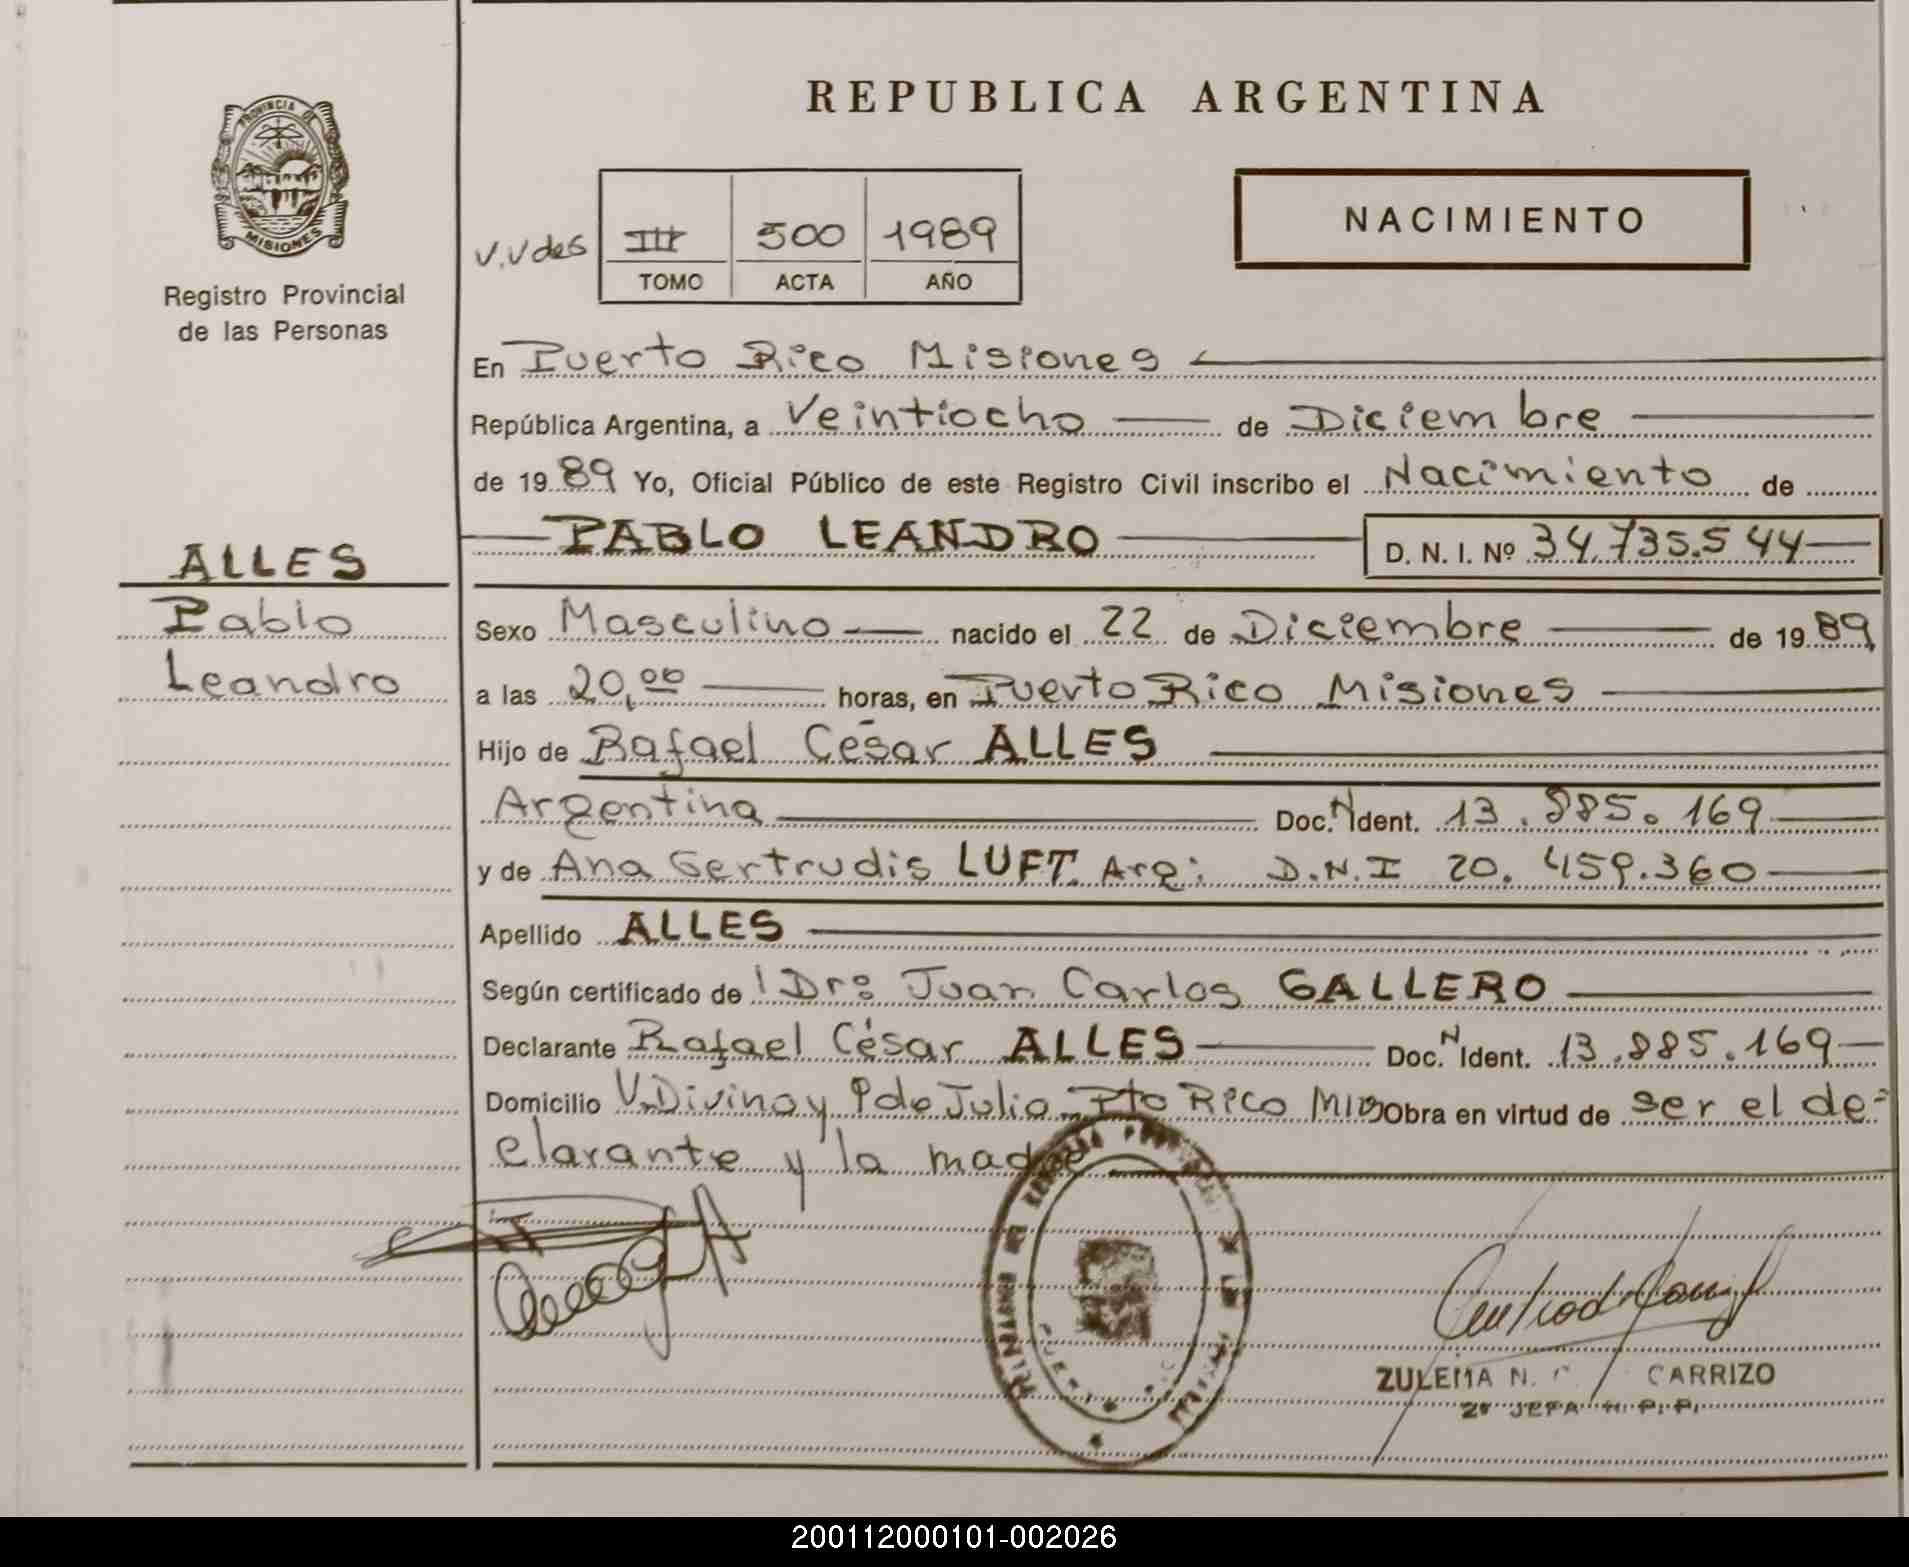 REPUBLICA ARGENTINA
PROVINCIA DE
MISIONES
Registro Provincial
de las Personas
NACIMIENTO
V.Vdes III 500 1989
TOMO ACTA AÑO
En Puerto Rico Misiones
República Argentina, a Veintiocho de Diciembre
de 1989 Yo, Oficial Público de este Registro Civil inscribo el Nacimiento de
PABLO LEANDRO D. N. I. Nº 34.735.544
ALLES
Pablo
Leandro
Sexo Masculino nacido el 22 de Diciembre de 1989
a las 20,00 horas, en Puerto Rico Misiones
Hijo de Rafael César ALLES
Argentina Doc. N Ident. 13.885.169
y de Ana Gertrudis LUFT. Arg: D.N.I 20.459.360
Apellido ALLES
Según certificado de Dr: Juan Carlos GALLERO
Declarante Rafael César ALLES Doc. N Ident. 13.885.169
Domicilio V.Divino y 9 de Julio Pto Rico Obra en virtud de ser el de=
clarante y la madre
ZULEMA N. CARRIZO
2º JEFA R. P. P.
200112000101-002026